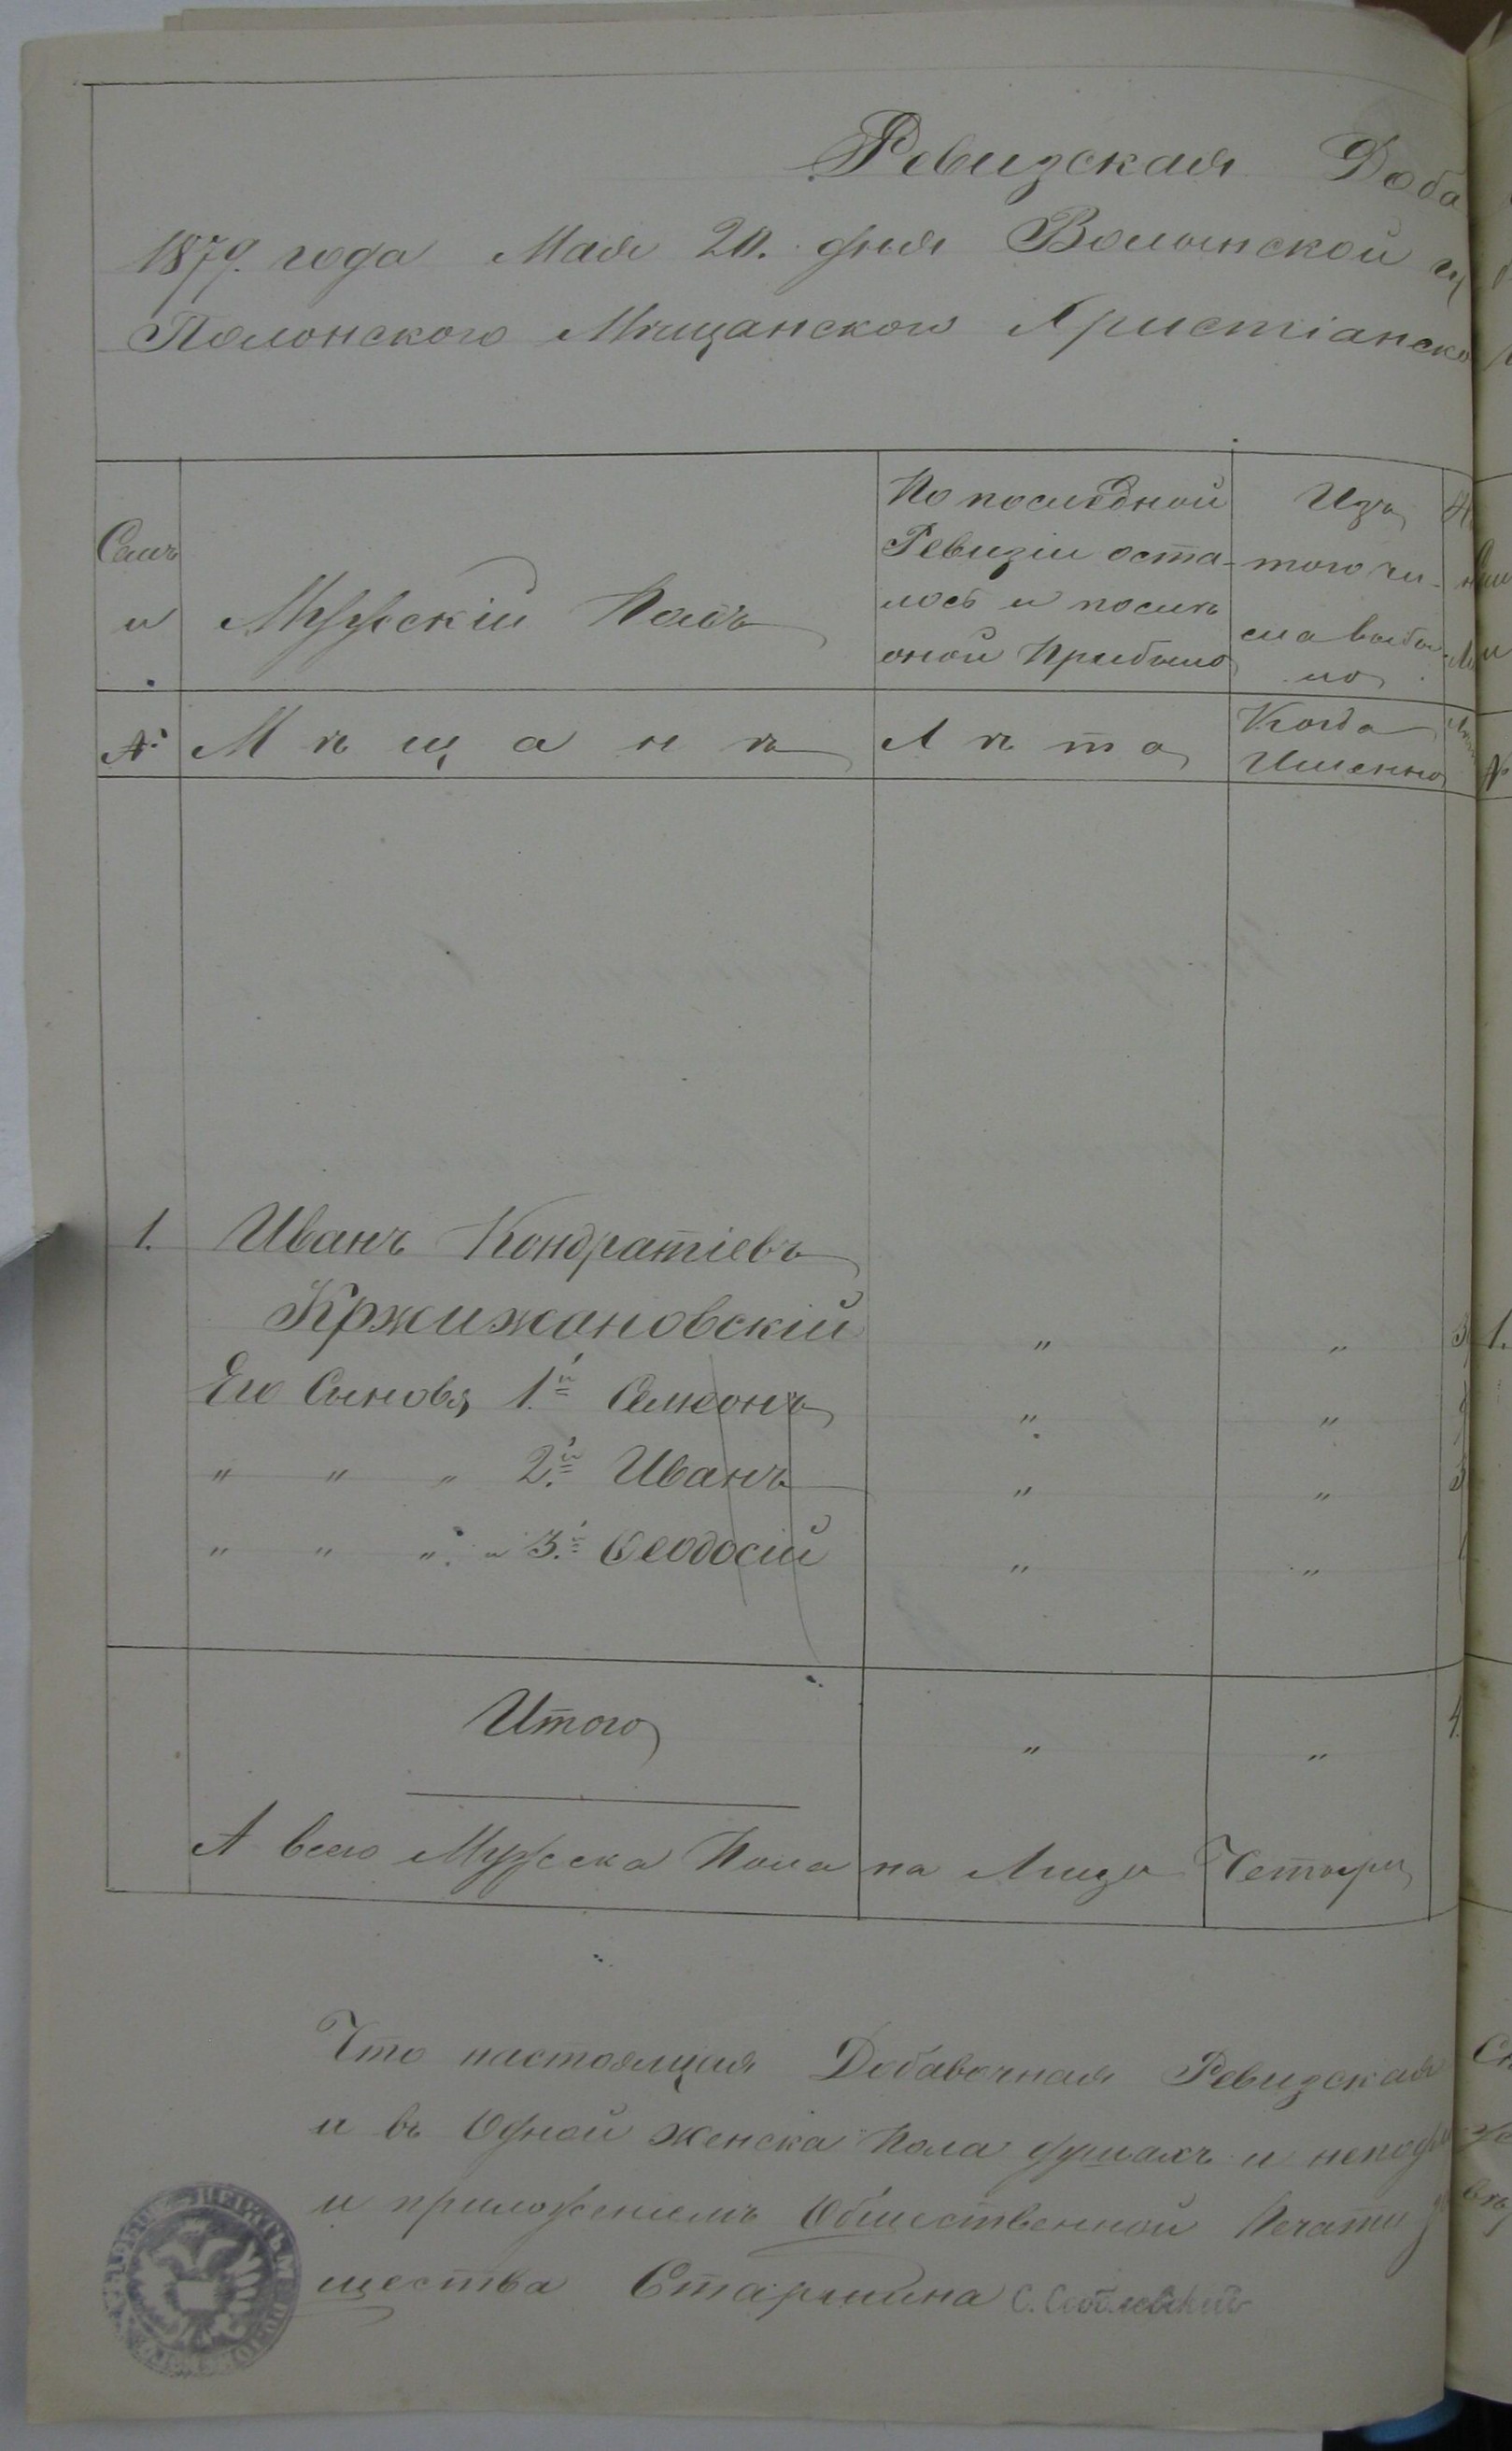 Ревизская Доба
1879. года Мая 20. дня Волынской
Полонского Мѣщанского Христіанско
Семь
и
Мужскій Полъ
По послѣдной
Ревизіи оста-
лось и послѣ
оной Прибыло
Изъ
того чи-
сла выбы
ло
№
Мѣщанѣ
Лѣта
Когда
Именно
1. Иванъ Кондратіевъ
Кржижановскій " "
Его Сыновя 1й Симеонъ " "
" " " 2й Иванъ " "
" " " " 3й Феодосій " "
Итого " " 4
А всего Мужска Пола на Лицо Четыри
Что настоящая Добавочная Ревизская
и въ Одной женска Пола душахъ и
и приложеніемъ Общественной Печати
щества Старшина